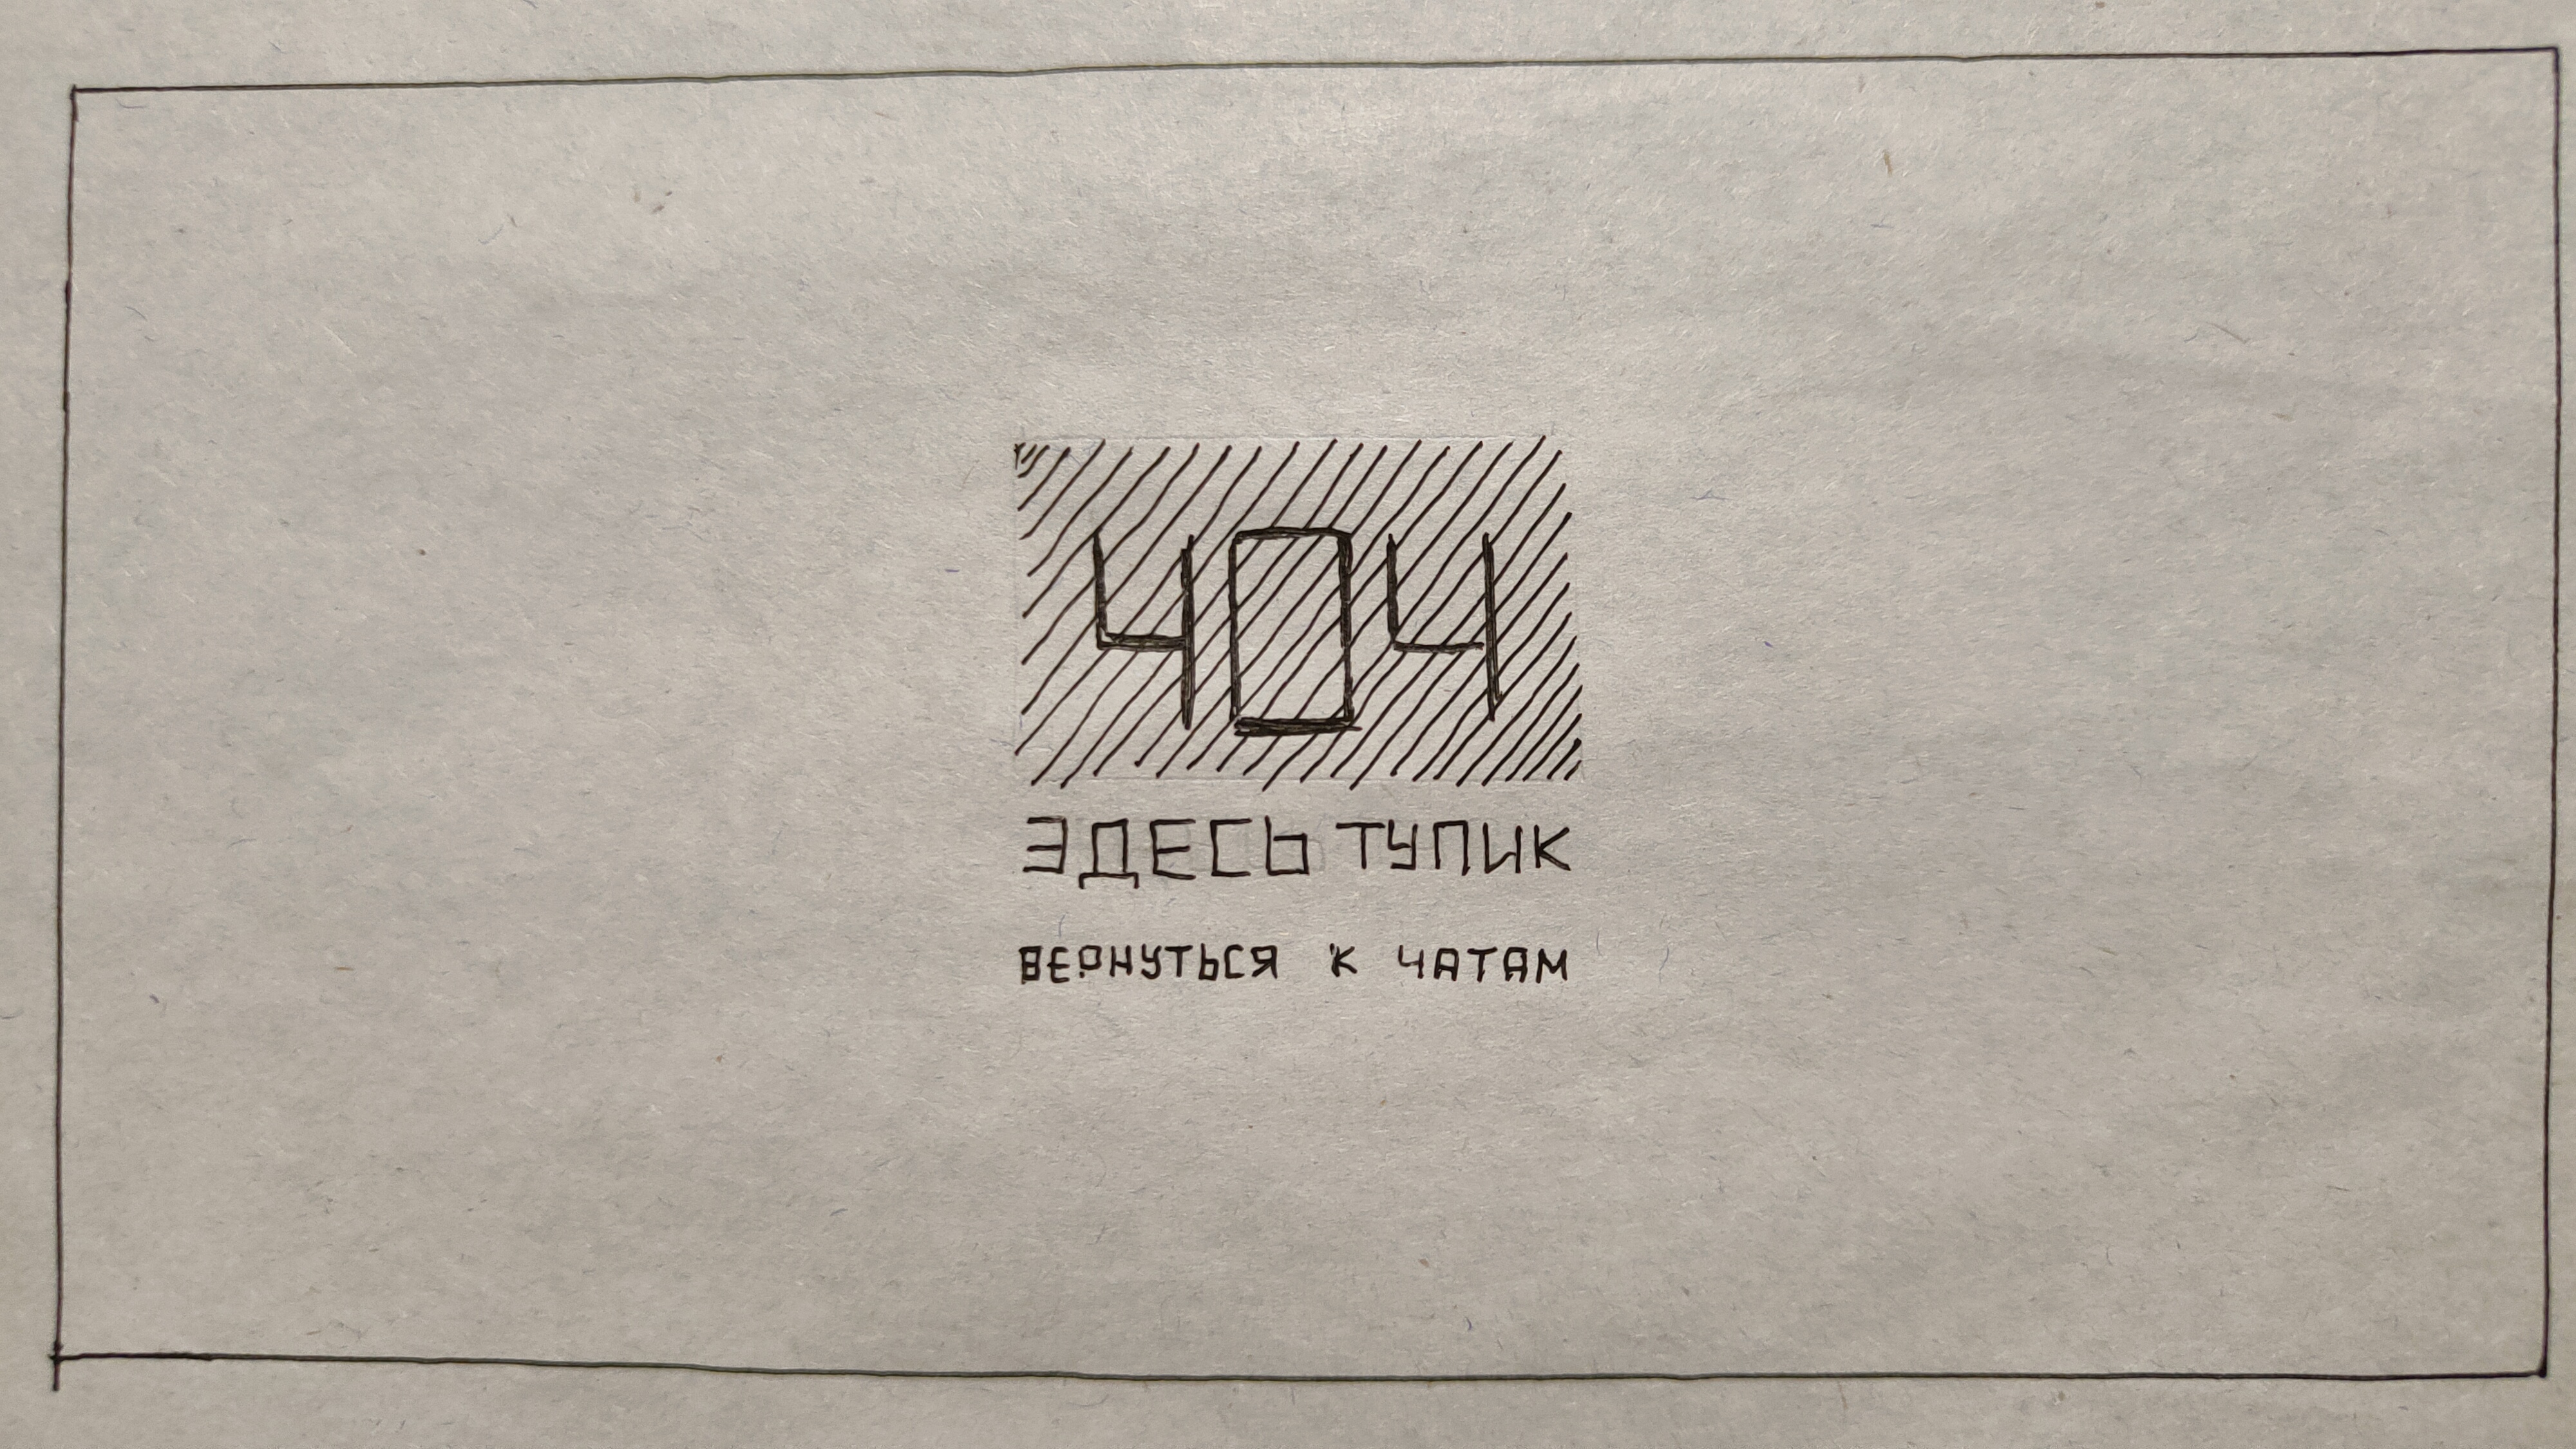 404
ЗДЕСЬ ТУПИК
ВЕРНУТЬСЯ К ЧАТАМ